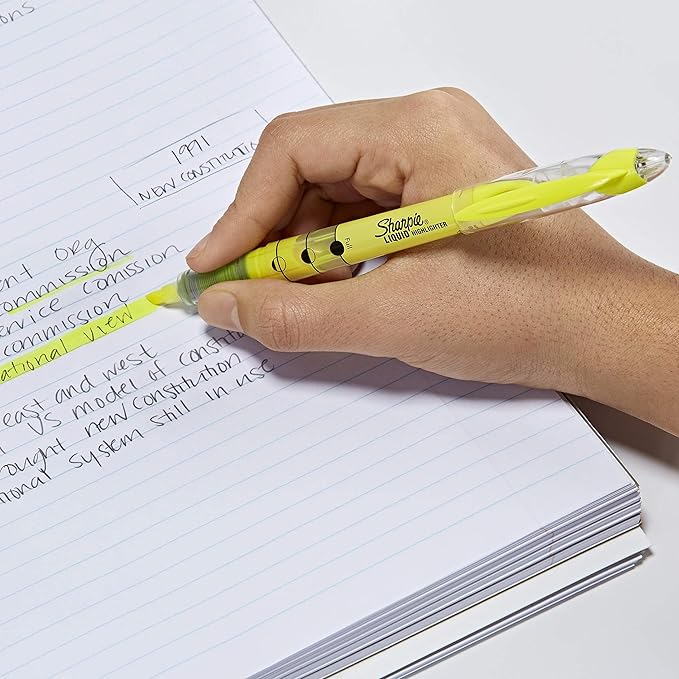 ons
1991
NEW CONSTITUTIO
ent org
ommission
ervice comission
commission
ational view
east and west
US model of constitu
rought new constitution
tional system still in use
Sharpie®
LIQUID HIGHLIGHTER
Full